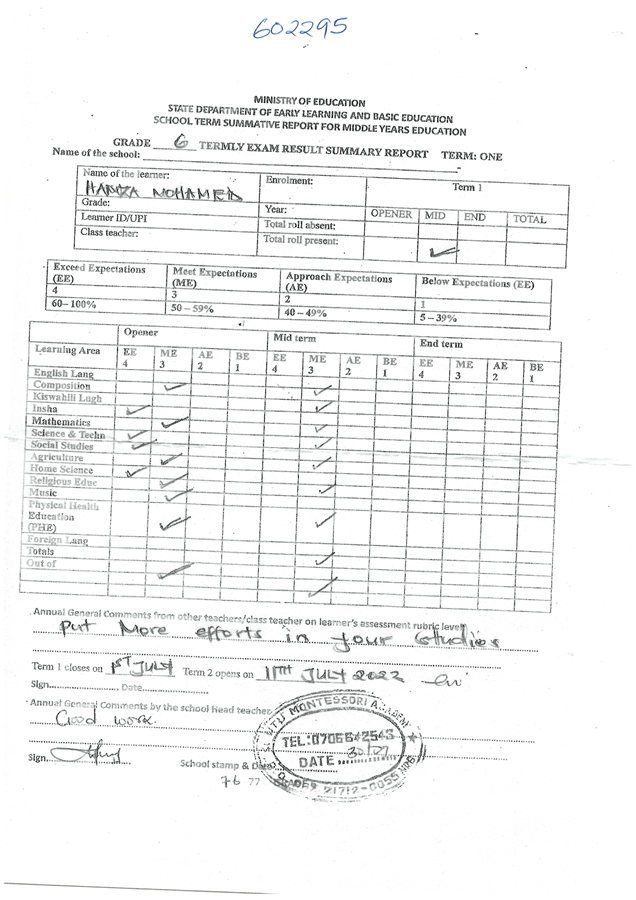 602295
MINISTRY OF EDUCATION
STATE DEPARTMENT OF EARLY LEARNING AND BASIC EDUCATION
SCHOOL TERM SUMMATIVE REPORT FOR MIDDLE YEARS EDUCATION
GRADE 6 TERMLY EXAM RESULT SUMMARY REPORT TERM: ONE
Name of the school:
Name of the learner: Enrolment: Term 1
HAMZA MOHAMED
Grade: Year: OPENER MID END TOTAL
Learner ID/UPI Total roll absent:
Class teacher: Total roll present: ✓
Exceed Expectations (EE) Meet Expectations (ME) Approach Expectations (AE) Below Expectations (EE)
4 3 2 1
60–100% 50–59% 40–49% 5–39%
Opener Mid term End term
Learning Area EE 4 ME 3 AE 2 BE 1 EE 4 ME 3 AE 2 BE 1 EE 4 ME 3 AE 2 BE 1
English Lang
Composition ✓ ✓
Kiswahili Lugh
Insha ✓ ✓
Mathematics ✓ ✓
Science & Techn ✓ ✓
Social Studies ✓ ✓
Agriculture ✓ ✓
Home Science ✓
Religious Educ ✓ ✓
Music ✓
Physical Health
Education
(PHE) ✓ ✓
Foreign Lang
Totals ✓
Out of ✓
✓
Annual General Comments from other teachers/class teacher on learner's assessment rubric level
Put More efforts in your studies
Term 1 closes on 1ST JULY Term 2 opens on 11TH JULY 2022
Sign. Date
Annual General Comments by the school Head teacher
Good work.
Sign. School stamp & Date
UTU MONTESSORI ACADEMY
TEL:0706642543
DATE 30/07
76 77